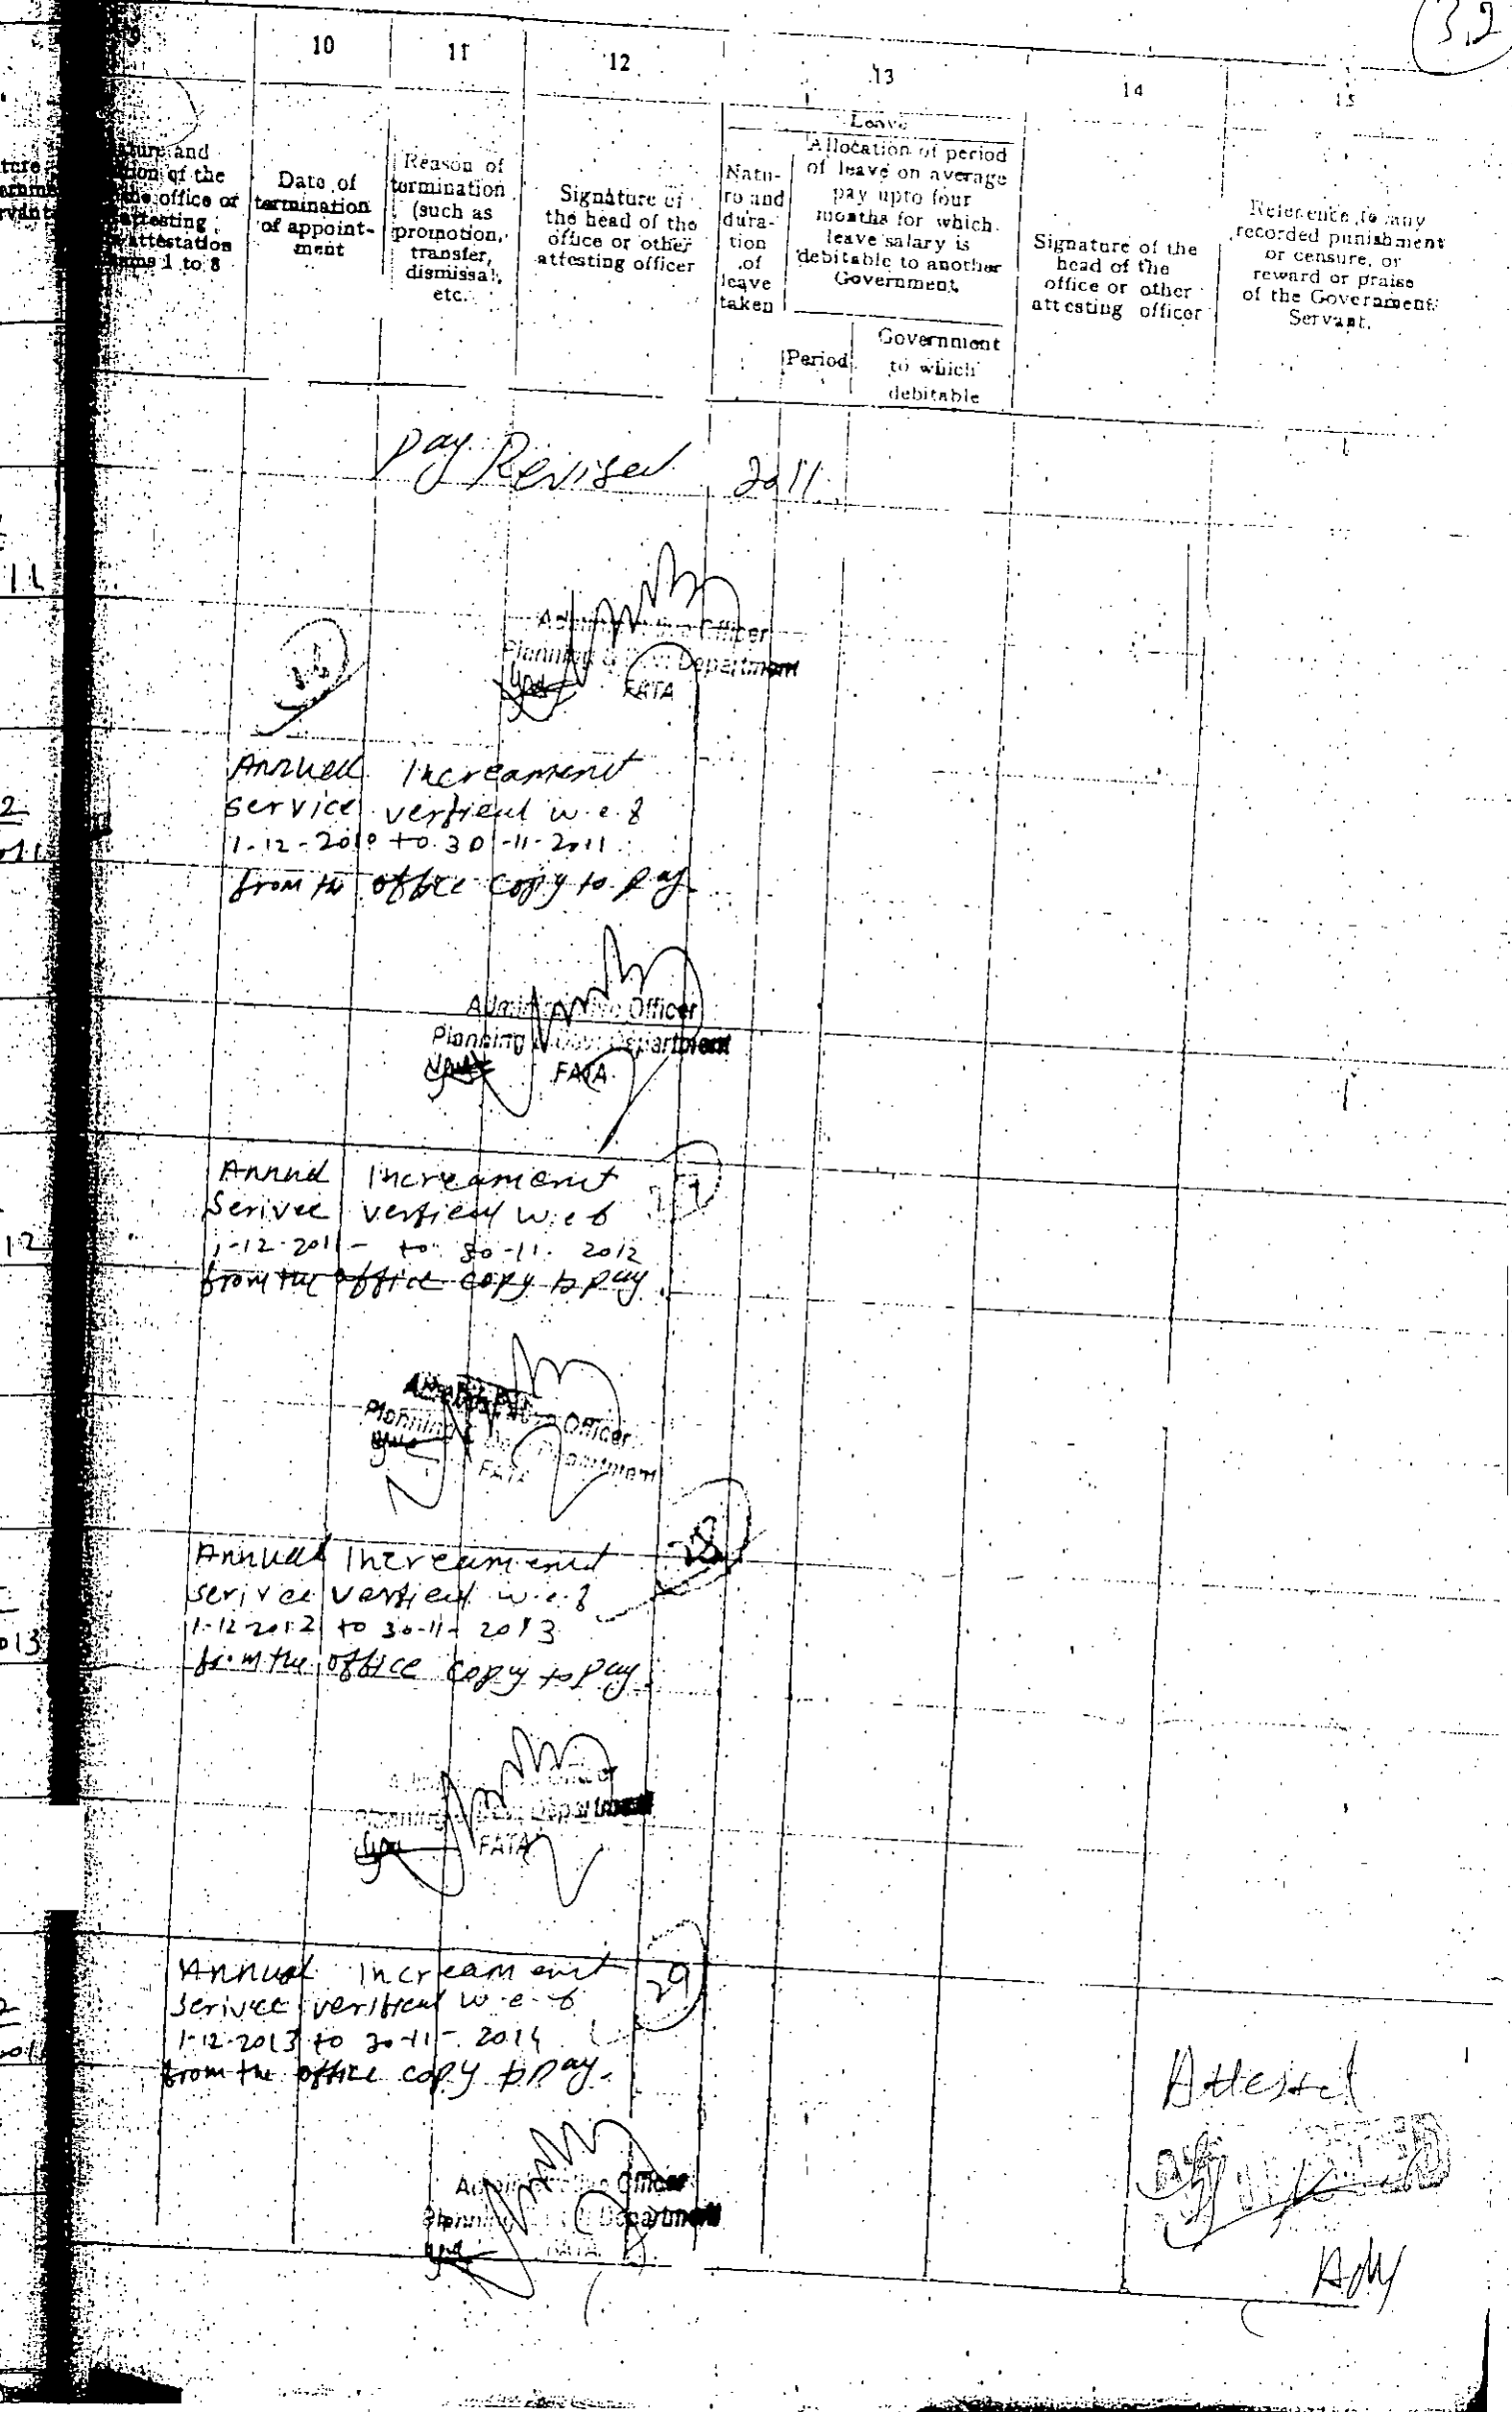 32
10
11
12
13
14
15
ture and
tion of the
the office or
attesting
attestation
ms 1 to 8
Date of
termination
of appoint-
ment
Reason of
termination
(such as
promotion,
transfer,
dismissal,
etc.
Signature of
the head of the
office or other
attesting officer
Leave
Natu-
re and
dura-
tion
of
leave
taken
Allocation of period
of leave on average
pay upto four
months for which
leave salary is
debitable to another
Government
Period
Government
to which
debitable
Signature of the
head of the
office or other
attesting officer
Reference to any
recorded punishment
or censure, or
reward or praise
of the Government
Servant.
Pay Revised 2011
11
Administrative Officer
Planning & Dev: Department
FATA
Annual Increament
service verfied w.e.f
1-12-2010 to 30-11-2011
from the office copy to pay
Administrative Officer
Planning & Dev: Department
FATA
Annual Increament
Serivce verfied w.e.f
1-12-2011- to 30-11-2012
from the office copy to pay
12
Administrative Officer
Planning & Dev: Department
FATA
28
Annual Increament
serivce verfied w.e.f
1-12-2012 to 30-11-2013
from the office copy to pay
013
Planning & Dev: Department
FATA
29
Annual Increament
Serivce verified w.e.f
1-12-2013 to 30-11-2014
from the office copy to pay.
Administrative Officer
Planning & Dev: Department
FATA
Attested
Adv